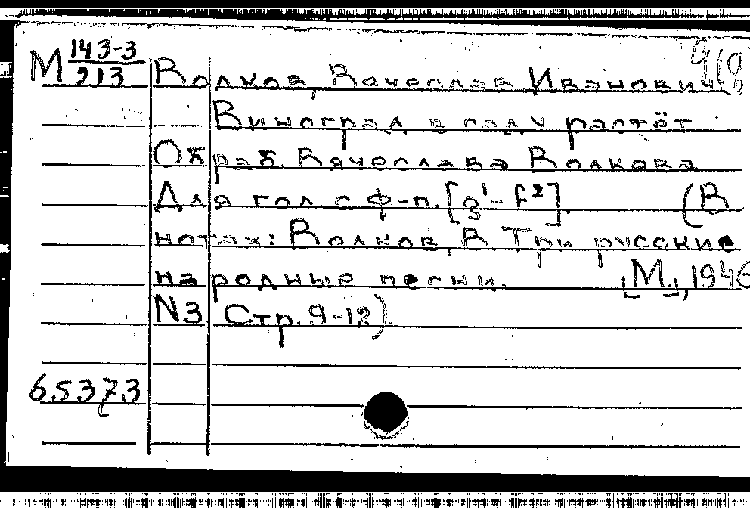 М 143-3/213 Волков, Вячеслав Иванович
Виноград в саду растёт
Обраб. Вячеслава Волкова
Для гол. с ф-п. [g¹-f²]. (В
нотах: Волков, В. Три русские
народные песни. [М.], 1946
N3 Стр. 9-12)
65373